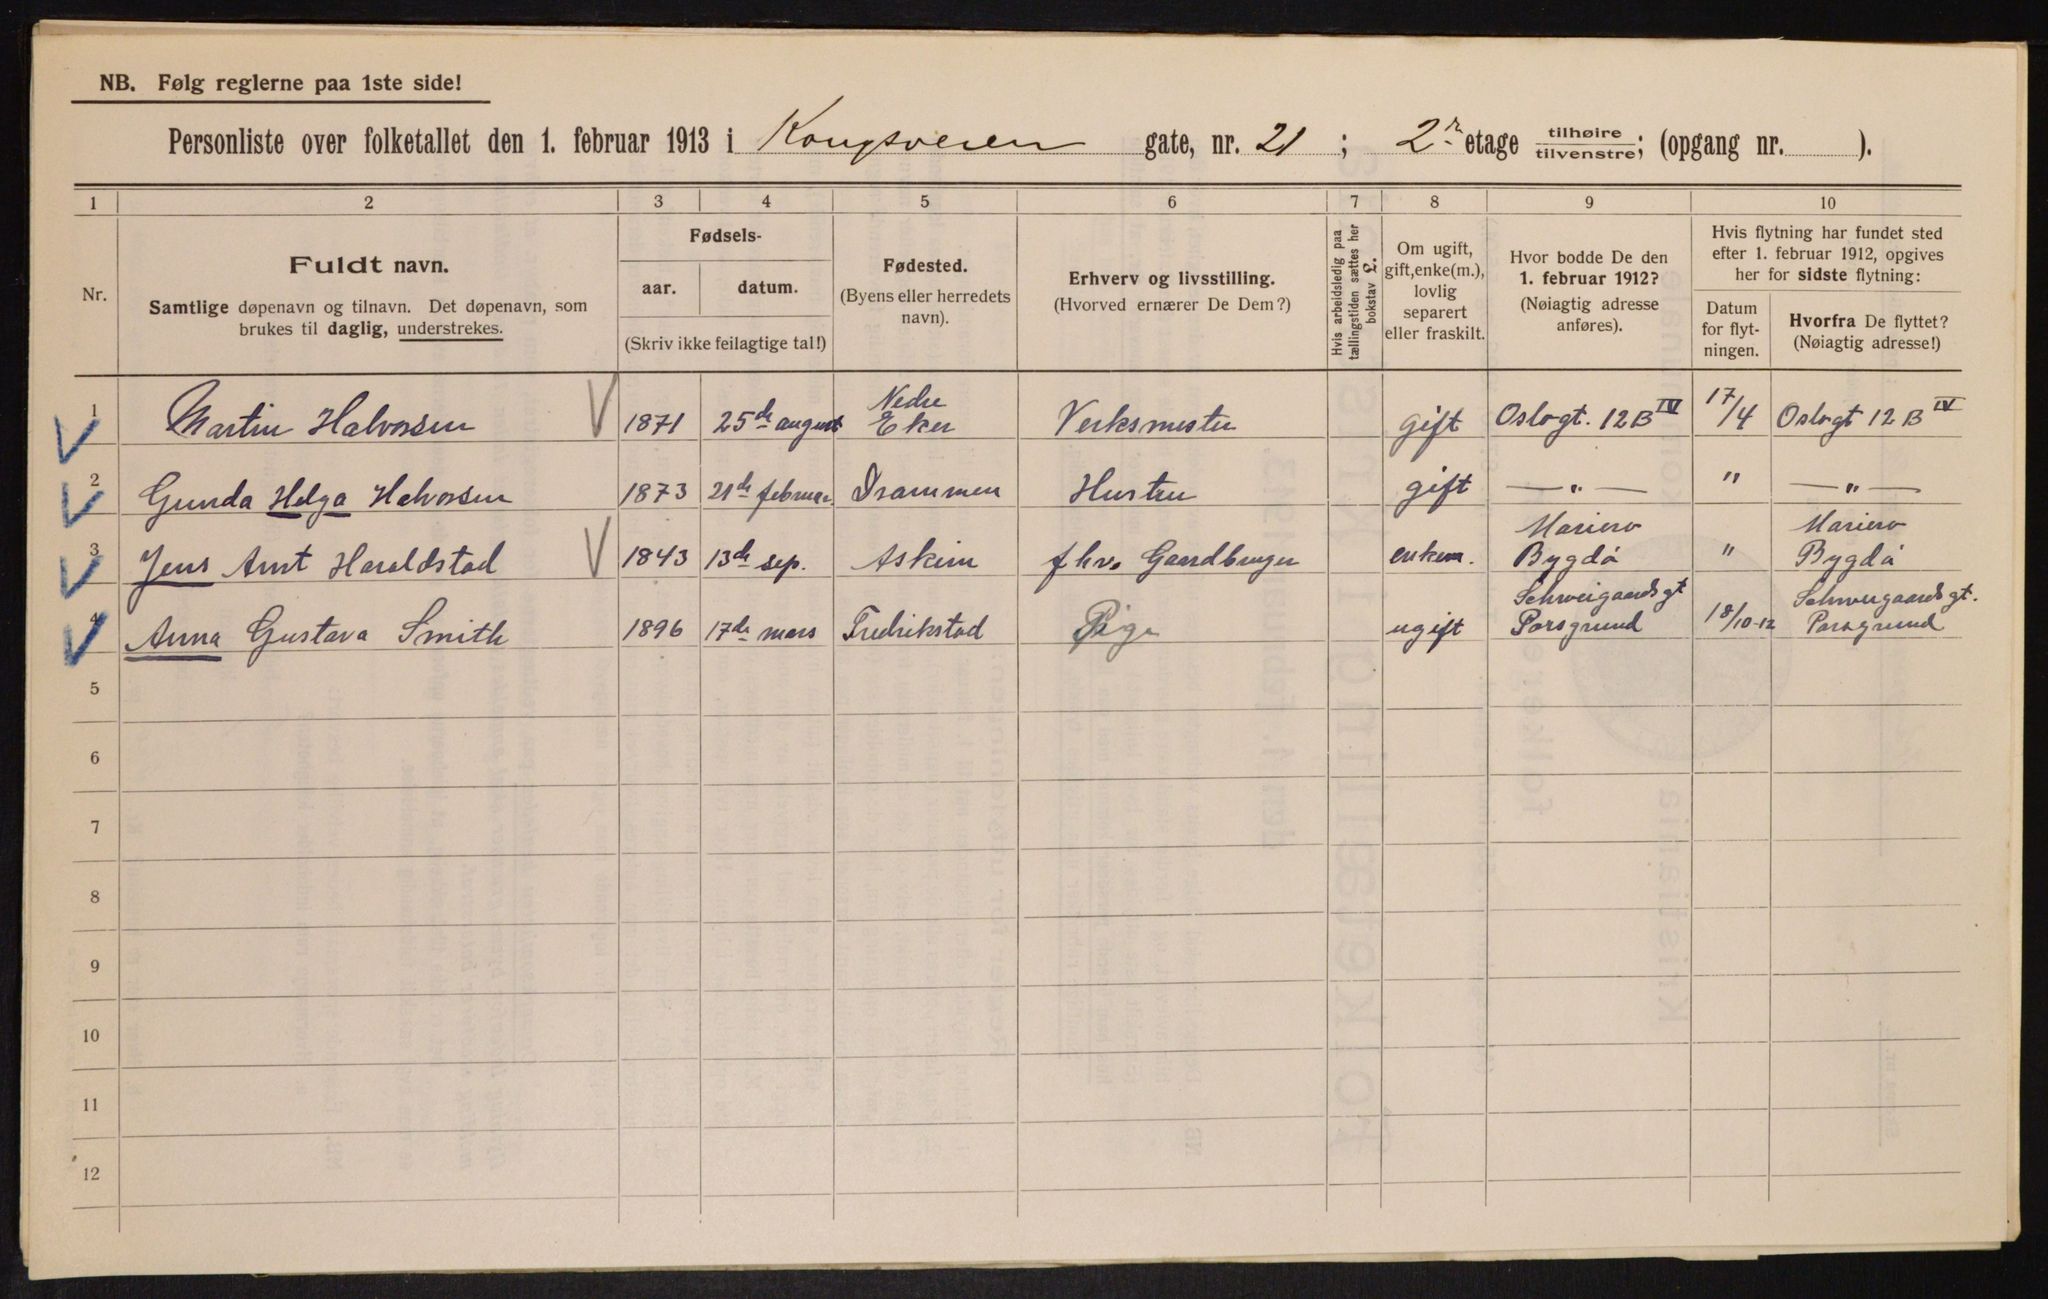 NB. Følg reglerne paa 1ste side!
Personliste over folketallet den 1. februar 1913 i Kongsveien gate, nr. 21 ; 2 etage tilhøire/tilvenstre; (opgang nr. ).
1 2 3 4 5 6 7 8 9 10
Nr.
Fuldt navn.
Samtlige døpenavn og tilnavn. Det døpenavn, som
brukes til daglig, understrekes.
Fødsels-
aar. datum.
(Skriv ikke feilagtige tal!)
Fødested.
(Byens eller herredets
navn).
Erhverv og livsstilling.
(Hvorved ernærer De Dem?)
Hvis arbeidsledig paa
tællingstiden sættes her
bokstav £.
Om ugift,
gift, enke(m.),
lovlig
separert
eller fraskilt.
Hvor bodde De den
1. februar 1912?
(Nøiagtig adresse
anføres).
Hvis flytning har fundet sted
efter 1. februar 1912, opgives
her for sidste flytning:
Datum
for flyt-
ningen.
Hvorfra De flyttet?
(Nøiagtig adresse!)
1 Martin Halvorsen 1871 25de august Nedre Eker Verksmester gift Oslogt. 12B IV 17/4 Oslogt 12 B IV
2 Gunda Helga Halvorsen 1873 21de februar. Drammen Hustru gift —„— „ —„—
3 Jens Arnt Haraldstad 1843 13de sep. Askim fhv. Gaardbruger enkem. Mariero Bygdö „ Mariero Bygdö
4 Anna Gustava Smith 1896 17de mars Fredrikstad Pige ugift Schweigaardsgt Porsgrund 18/10-12 Schweigaardsgt. Porsgrund
5
6
7
8
9
10
11
12